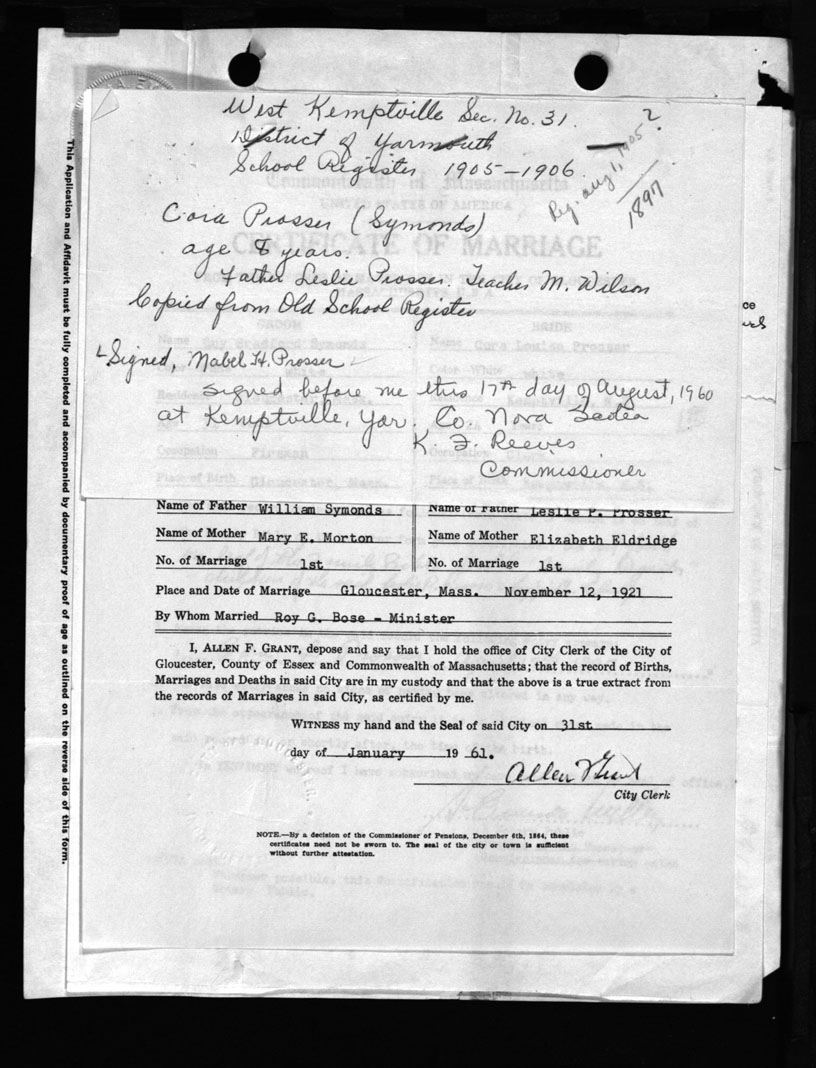 West Kemptville Sec. No. 31.
District of Yarmouth
School Register 1905-1906
Reg. Aug 1, 1905?
1897
Cora Prosser (Symonds)
age 8 years.
Father Leslie Prosser. Teacher M. Wilson
Copied from Old School Register
Signed, Mabel H. Prosser
signed before me this 17th day of August, 1960
at Kemptville, Yar. Co. Nova Scotia
K. F. Reeves
Commissioner
Commonwealth of Massachusetts
UNITED STATES OF AMERICA
CERTIFICATE OF MARRIAGE
GROOM BRIDE
Name Guy Bradford Symonds Name Cora Louise Prosser
Color White Color White white
Occupation Fireman Occupation Clerk
Place of Birth Gloucester, Mass. Place of Birth
Name of Father William Symonds Name of Father Leslie P. Prosser
Name of Mother Mary E. Morton Name of Mother Elizabeth Eldridge
No. of Marriage 1st No. of Marriage 1st
Place and Date of Marriage Gloucester, Mass. November 12, 1921
By Whom Married Roy G. Bose - Minister
I, ALLEN F. GRANT, depose and say that I hold the office of City Clerk of the City of
Gloucester, County of Essex and Commonwealth of Massachusetts; that the record of Births,
Marriages and Deaths in said City are in my custody and that the above is a true extract from
the records of Marriages in said City, as certified by me.
WITNESS my hand and the Seal of said City on 31st
day of January 19 61.
Allen F Grant
City Clerk
NOTE.—By a decision of the Commissioner of Pensions, December 6th, 1864, these
certificates need not be sworn to. The seal of the city or town is sufficient
without further attestation.
This Application and Affidavit must be fully completed and accompanied by documentary proof of age as outlined on the reverse side of this form.